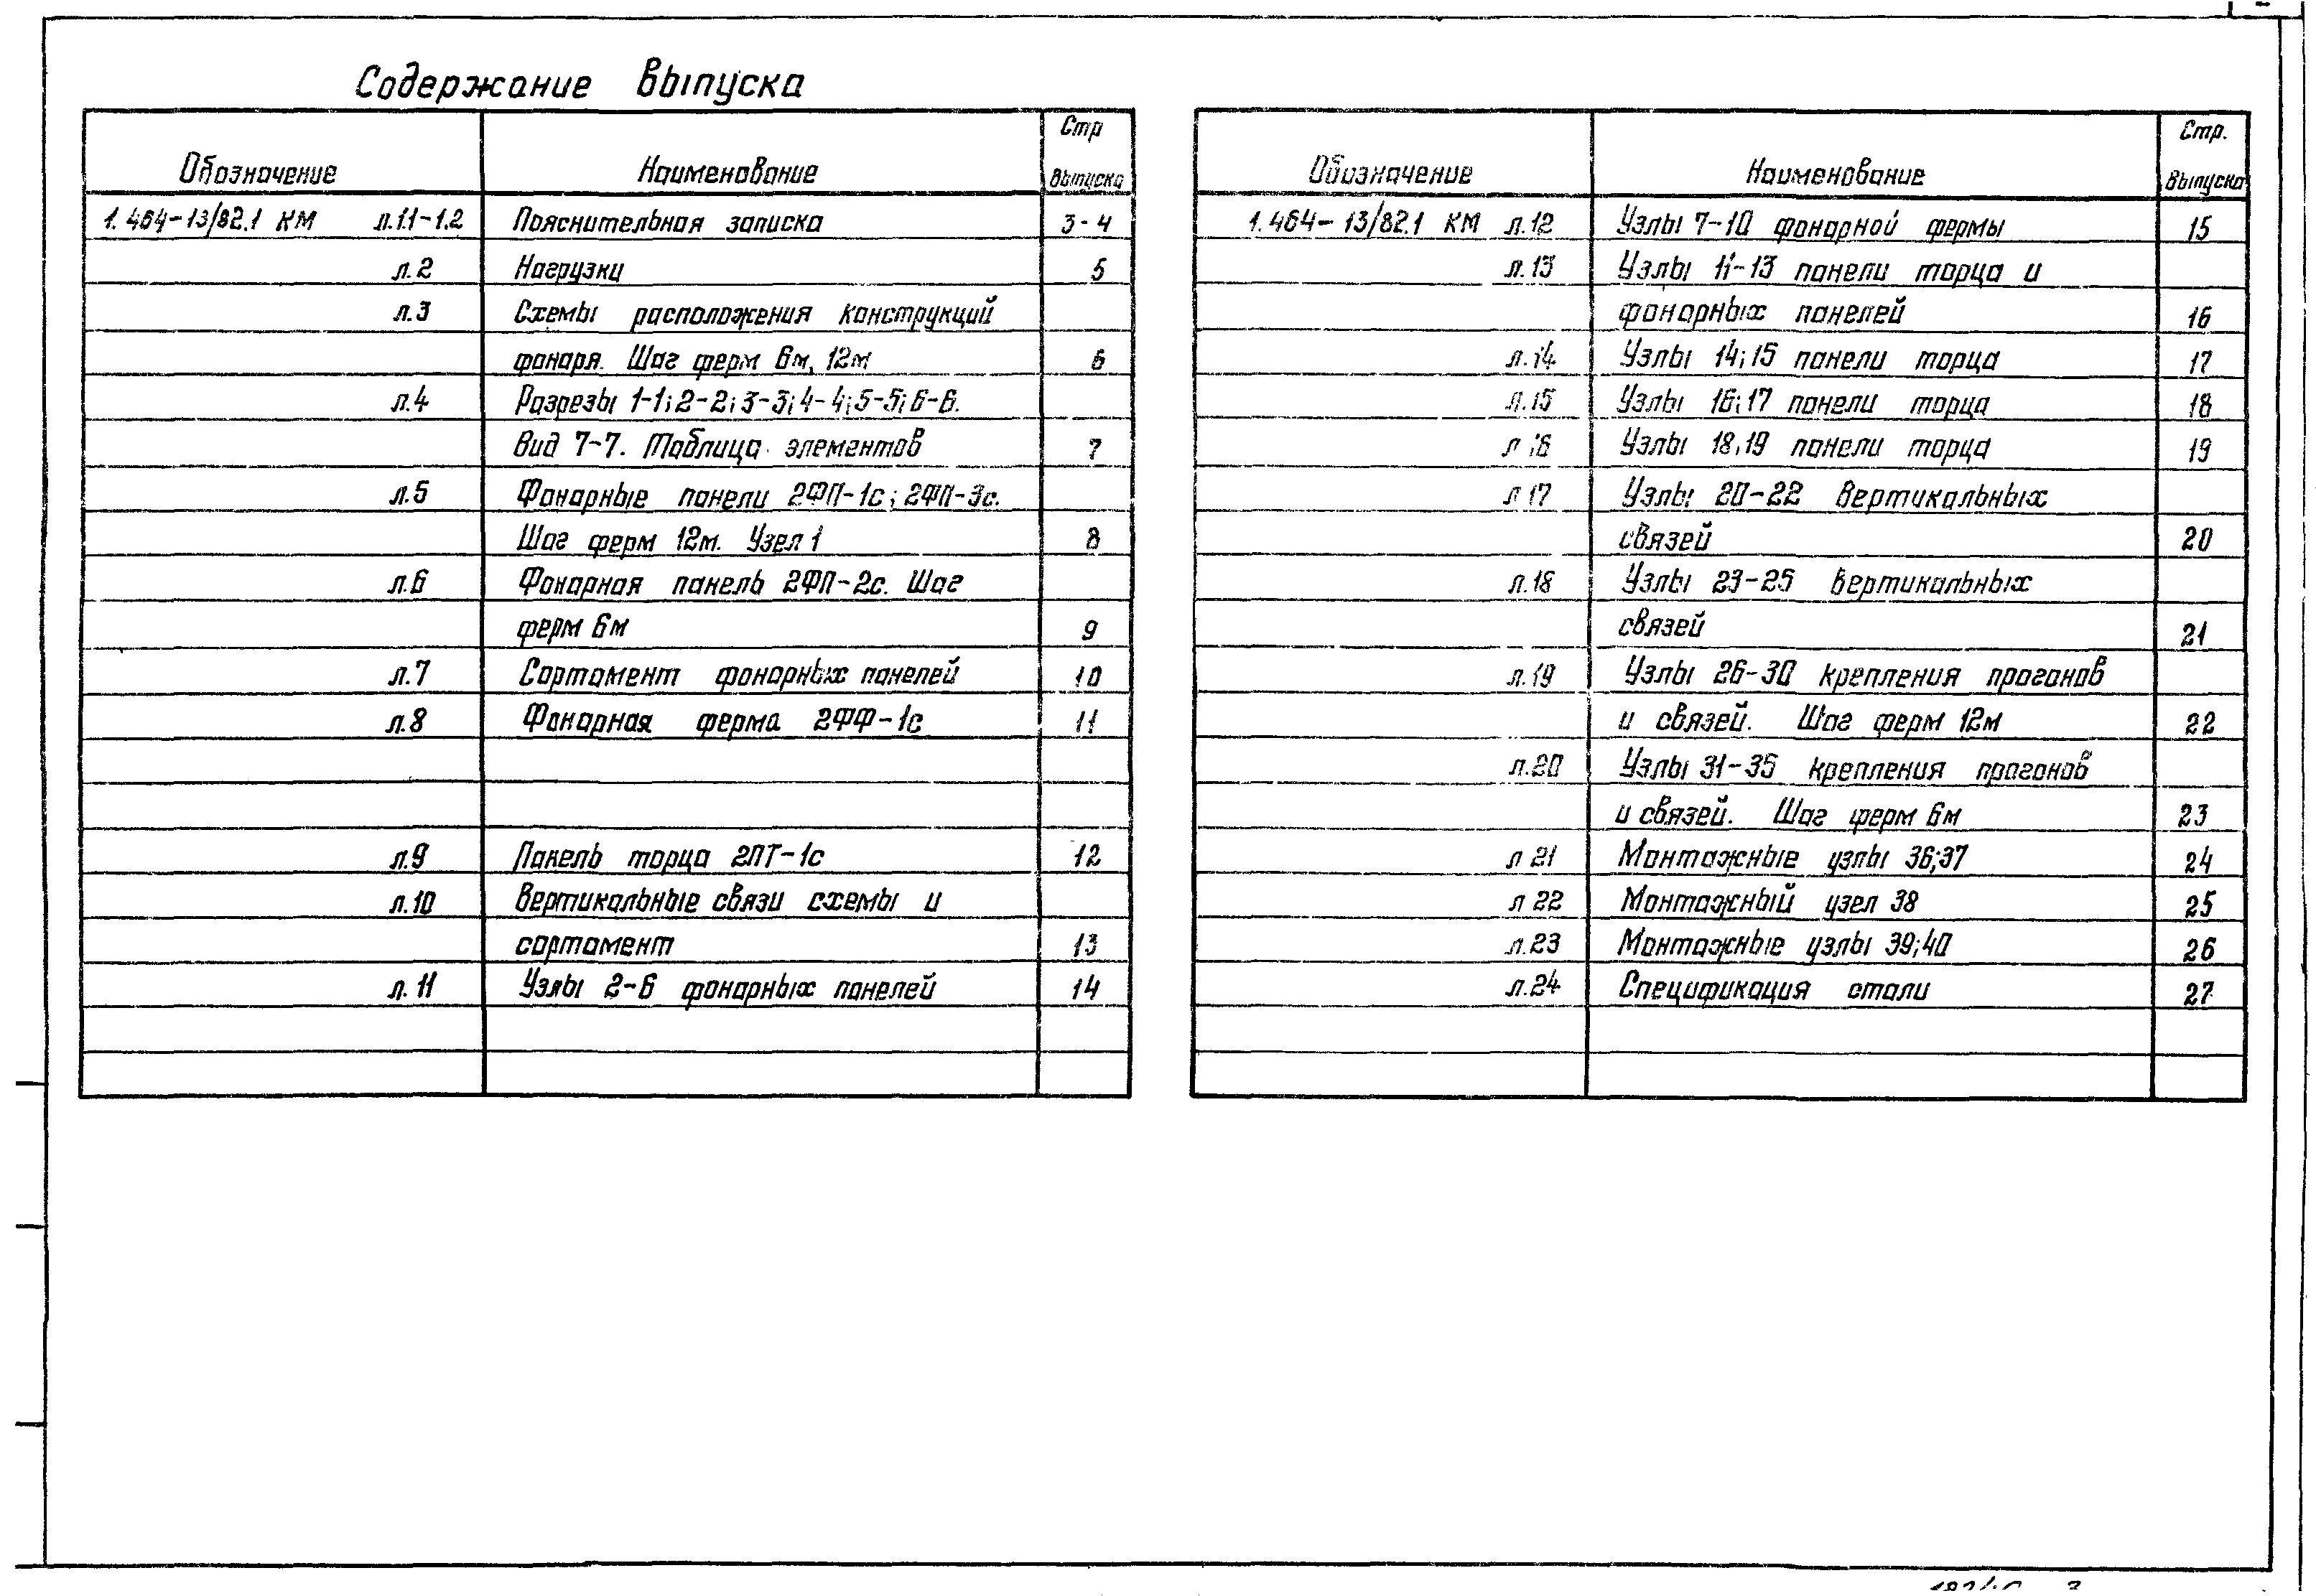 Содержание выпуска
Обозначение Наименование Стр выпуска
1.464-13/82.1 КМ л.1.1-1.2 Пояснительная записка 3-4
л.2 Нагрузки 5
л.3 Схемы расположения конструкций
фонаря. Шаг ферм 6м, 12м 6
л.4 Разрезы 1-1; 2-2; 3-3; 4-4; 5-5; 6-6.
Вид 7-7. Таблица элементов 7
л.5 Фонарные панели 2ФП-1с; 2ФП-3с.
Шаг ферм 12м. Узел 1 8
л.6 Фонарная панель 2ФП-2с. Шаг
ферм 6м 9
л.7 Сортамент фонарных панелей 10
л.8 Фонарная ферма 2ФФ-1с 11
л.9 Панель торца 2ПТ-1с 12
л.10 Вертикальные связи схемы и
сортамент 13
л.11 Узлы 2-6 фонарных панелей 14
Обозначение Наименование Стр. выпуска
1.464-13/82.1 КМ л.12 Узлы 7-10 фонарной фермы 15
л.13 Узлы 11-13 панели торца и
фонарных панелей 16
л.14 Узлы 14; 15 панели торца 17
л.15 Узлы 16; 17 панели торца 18
л.16 Узлы 18, 19 панели торца 19
л.17 Узлы 20-22 вертикальных
связей 20
л.18 Узлы 23-25 вертикальных
связей 21
л.19 Узлы 26-30 крепления прогонов
и связей. Шаг ферм 12м 22
л.20 Узлы 31-35 крепления прогонов
и связей. Шаг ферм 6м 23
л 21 Монтажные узлы 36; 37 24
л 22 Монтажный узел 38 25
л.23 Монтажные узлы 39; 40 26
л.24 Спецификация стали 27